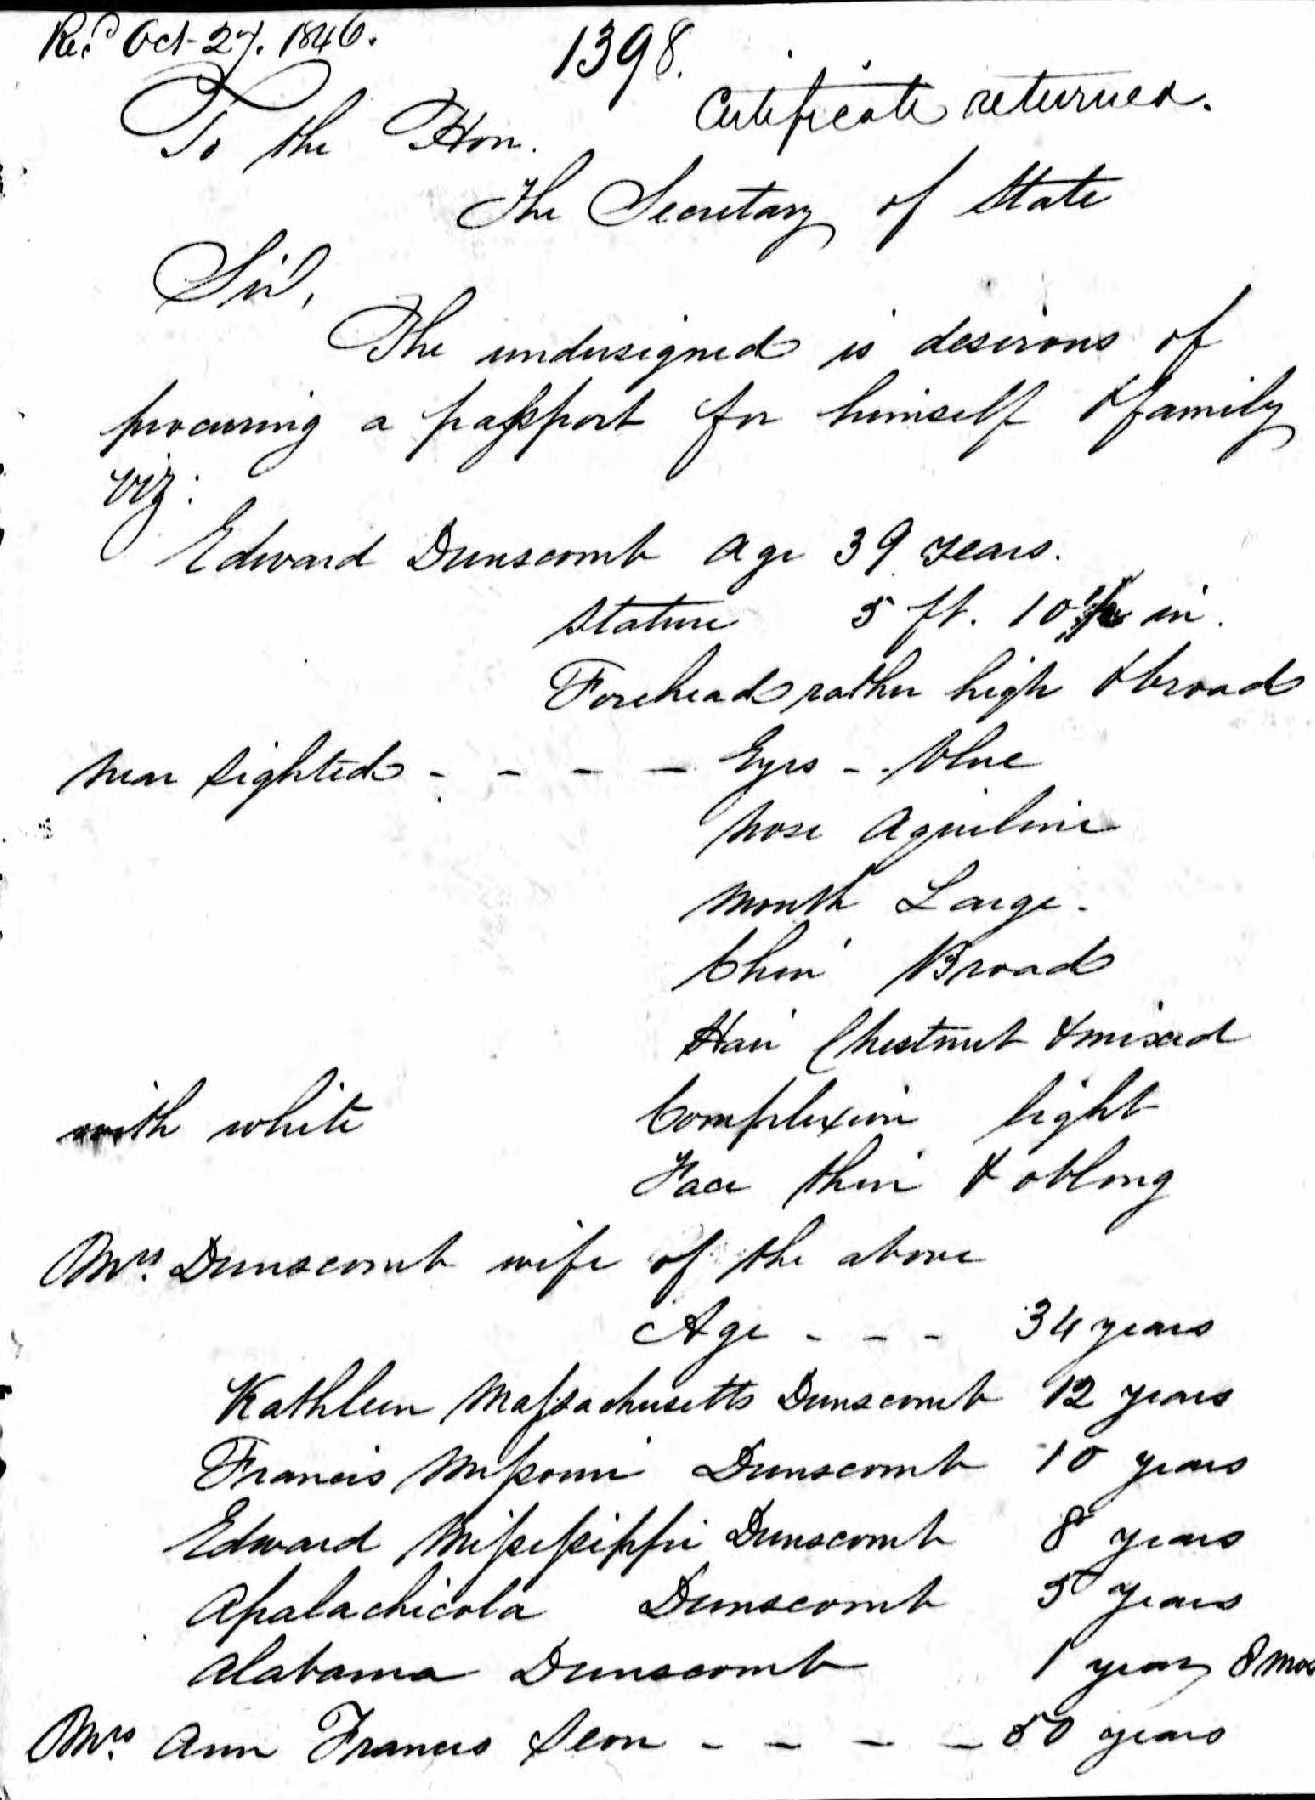 Rec.d Oct. 27. 1846.
1398.
Certificate returned.
To the Hon.
The Secretary of State
Sir,
The undersigned is desirous of
procuring a passport for himself & family
viz:
Edward Dunscomb age 39 years.
Stature 5 ft. 10 1/2 in.
Forehead rather high & broad
near sighted - - - - Eyes - blue
Nose aquiline
Mouth Large.
Chin Broad
Hair Chestnut & mixed
with white Complexion light
Face thin & oblong
Mrs. Dunscomb wife of the above
Age - - - 34 years
Kathleen Massachusetts Dunscomb 12 years
Francis Missouri Dunscomb 10 years
Edward Mississippi Dunscomb 8 years
Apalachicola Dunscomb 5 years
Alabama Dunscomb 1 year, 8 mos
Mrs. Ann Francis - - - - 50 years